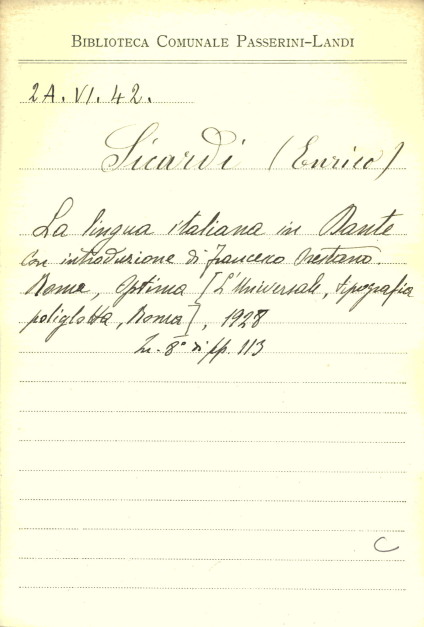 BIBLIOTECA COMUNALE PASSERINI-LANDI
2A. VI. 42.
Sicardi (Enrico)
La lingua italiana in Dante
Con introduzione di Francesco Orestano.
Roma, Optima [L'Universale, tipografia
poliglotta, Roma], 1928
In-8° di pp. 113
C